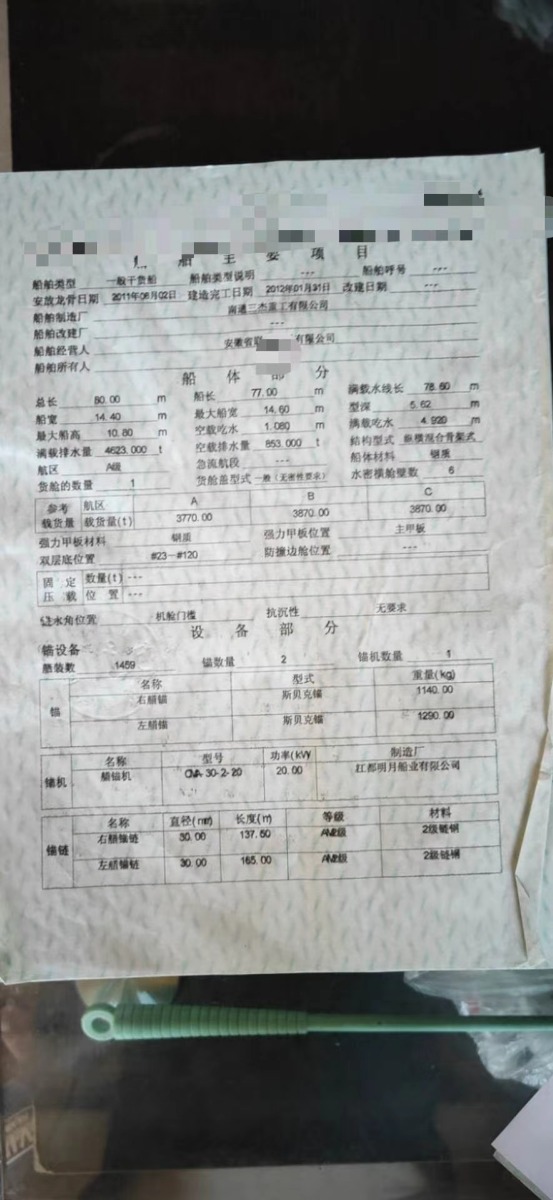 船舶主要项目
船舶类型 一般干货船 船舶类型说明 --- 船舶呼号 ---
安放龙骨日期 2011年06月02日 建造完工日期 2012年01月31日 改建日期 ---
船舶制造厂 南通三杰重工有限公司
船舶改建厂 ---
船舶经营人 安徽省 有限公司
船舶所有人
船体部分
总长 80.00 m 船长 77.00 m 满载水线长 78.60 m
船宽 14.40 m 最大船宽 14.60 m 型深 5.62 m
最大船高 10.80 m 空载吃水 1.080 m 满载吃水 4.920 m
满载排水量 4623.000 t 空载排水量 853.000 t 结构型式 纵横混合骨架式
航区 A级 急流航段 --- 船体材料 钢质
货舱的数量 1 货舱盖型式 一般(无密性要求) 水密横舱壁数 6
参考 航区 A B C
载货量 载货量(t) 3770.00 3870.00 3870.00
强力甲板材料 钢质 强力甲板位置 主甲板
双层底位置 #23--#120 防撞边舱位置 ---
固定 数量(t) ---
压载 位置 ---
进水角位置 机舱门槛 抗沉性 无要求
设备部分
锚设备
舾装数 1459 锚数量 2 锚机数量 1
名称 型式 重量(kg)
锚 右艏锚 斯贝克锚 1140.00
左艏锚 斯贝克锚 1290.00
名称 型号 功率(kW) 制造厂
锚机 艏锚机 20.00 江都明月船业有限公司
名称 直径(mm) 长度(m) 等级 材料
锚链 右艏锚链 30.00 137.50 AM2级 2级链钢
左艏锚链 30.00 165.00 AM2级 2级链钢